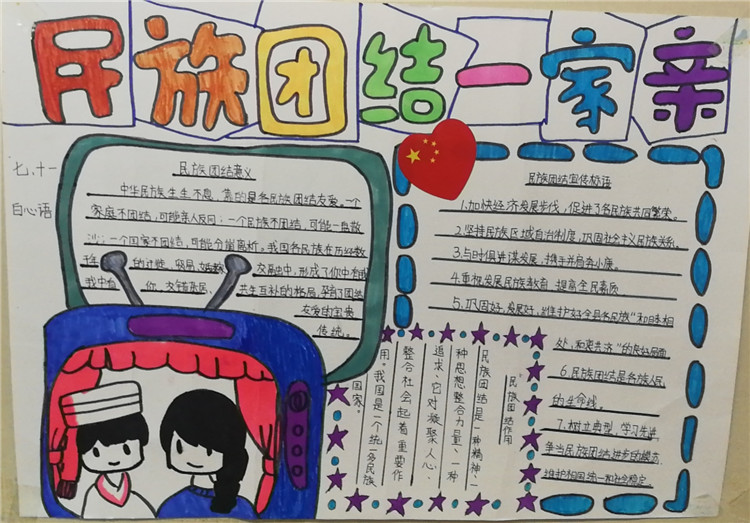 民族团结一家亲
七、十一
白心语
民族团结意义
中华民族生生不息,靠的是各民族团结友爱。一个
家庭不团结,可能亲人反目;一个民族不团结,可能一盘散
沙;一个国家不团结,可能分崩离析。我国各民族在历经数
千年的迁徙、贸易、婚嫁、交融中,形成了你中有我
我中有你、交错杂居、共生互补的格局,孕育了团结
友爱的宝贵
传统。
民族团结宣传标语
1.加快经济发展步伐,促进了各民族共同繁荣。
2.坚持民族区域自治制度,巩固社会主义民族关系。
3.与时俱进谋发展,携手并肩奔小康。
4.重视发展民族教育 提高全民素质
5.巩固好,发展好,维护好全县各民族"和睦相
处,和衷共济"的良好局面
6.民族团结是各族人民
的生命线。
7.树立典型,学习先进
争当民族团结进步的模范
维护祖国统一和社会稳定
民族团结作用
民族团结是一种精神、一
种思想整合力量、一种
追求、它对凝聚人心、
整合社会起着重要作
用。我国是一个统一多民族
国家。